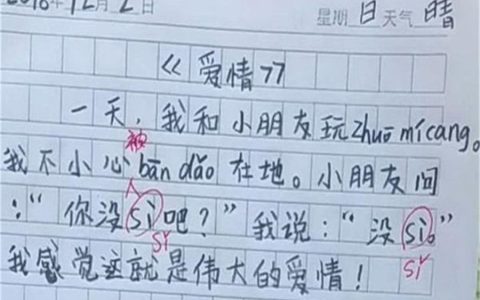 2018年12月2日 星期日 天气 晴
《爱情》
一天,我和小朋友玩zhuō mícang。
被
我不小心bān dǎo在地。小朋友问
:“你没sì吧?”我说:“没sì。”
sʏ sʏ
我感觉这就是伟大的爱情!